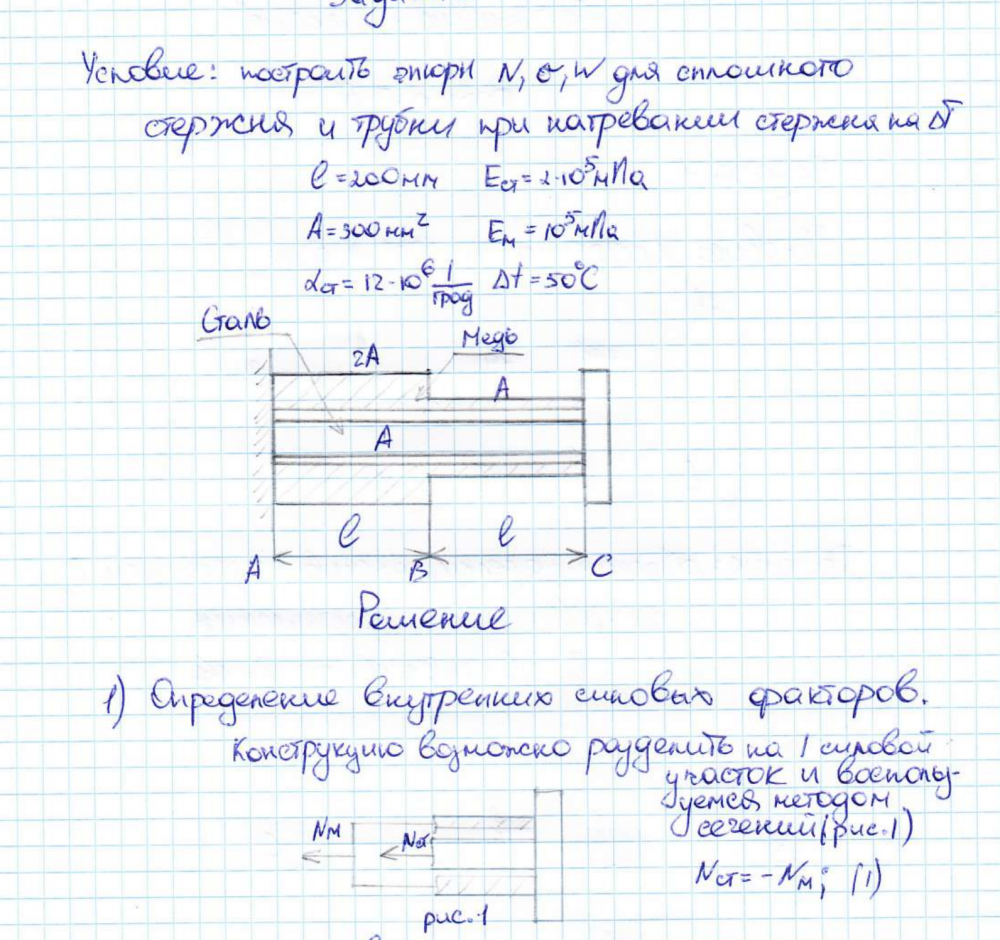 Зада
Условие: построить эпюры N, σ, W для сплошного
стержня и трубки при нагревании стержня на ΔT
l = 200мм Eст = 2·10⁵мПа
A = 300мм² Eм = 10⁵мПа
αст = 12·10⁶ 1/град Δt = 50°C
Сталь
Медь
2A
A
A
l l
A B C
Решение
1) Определение внутренних силовых факторов.
Конструкцию возможно разделить на 1 силовой
участок и воспользу-
уемся методом
сечений (рис.1)
Nм Nст
Nст = -Nм; (1)
рис.1